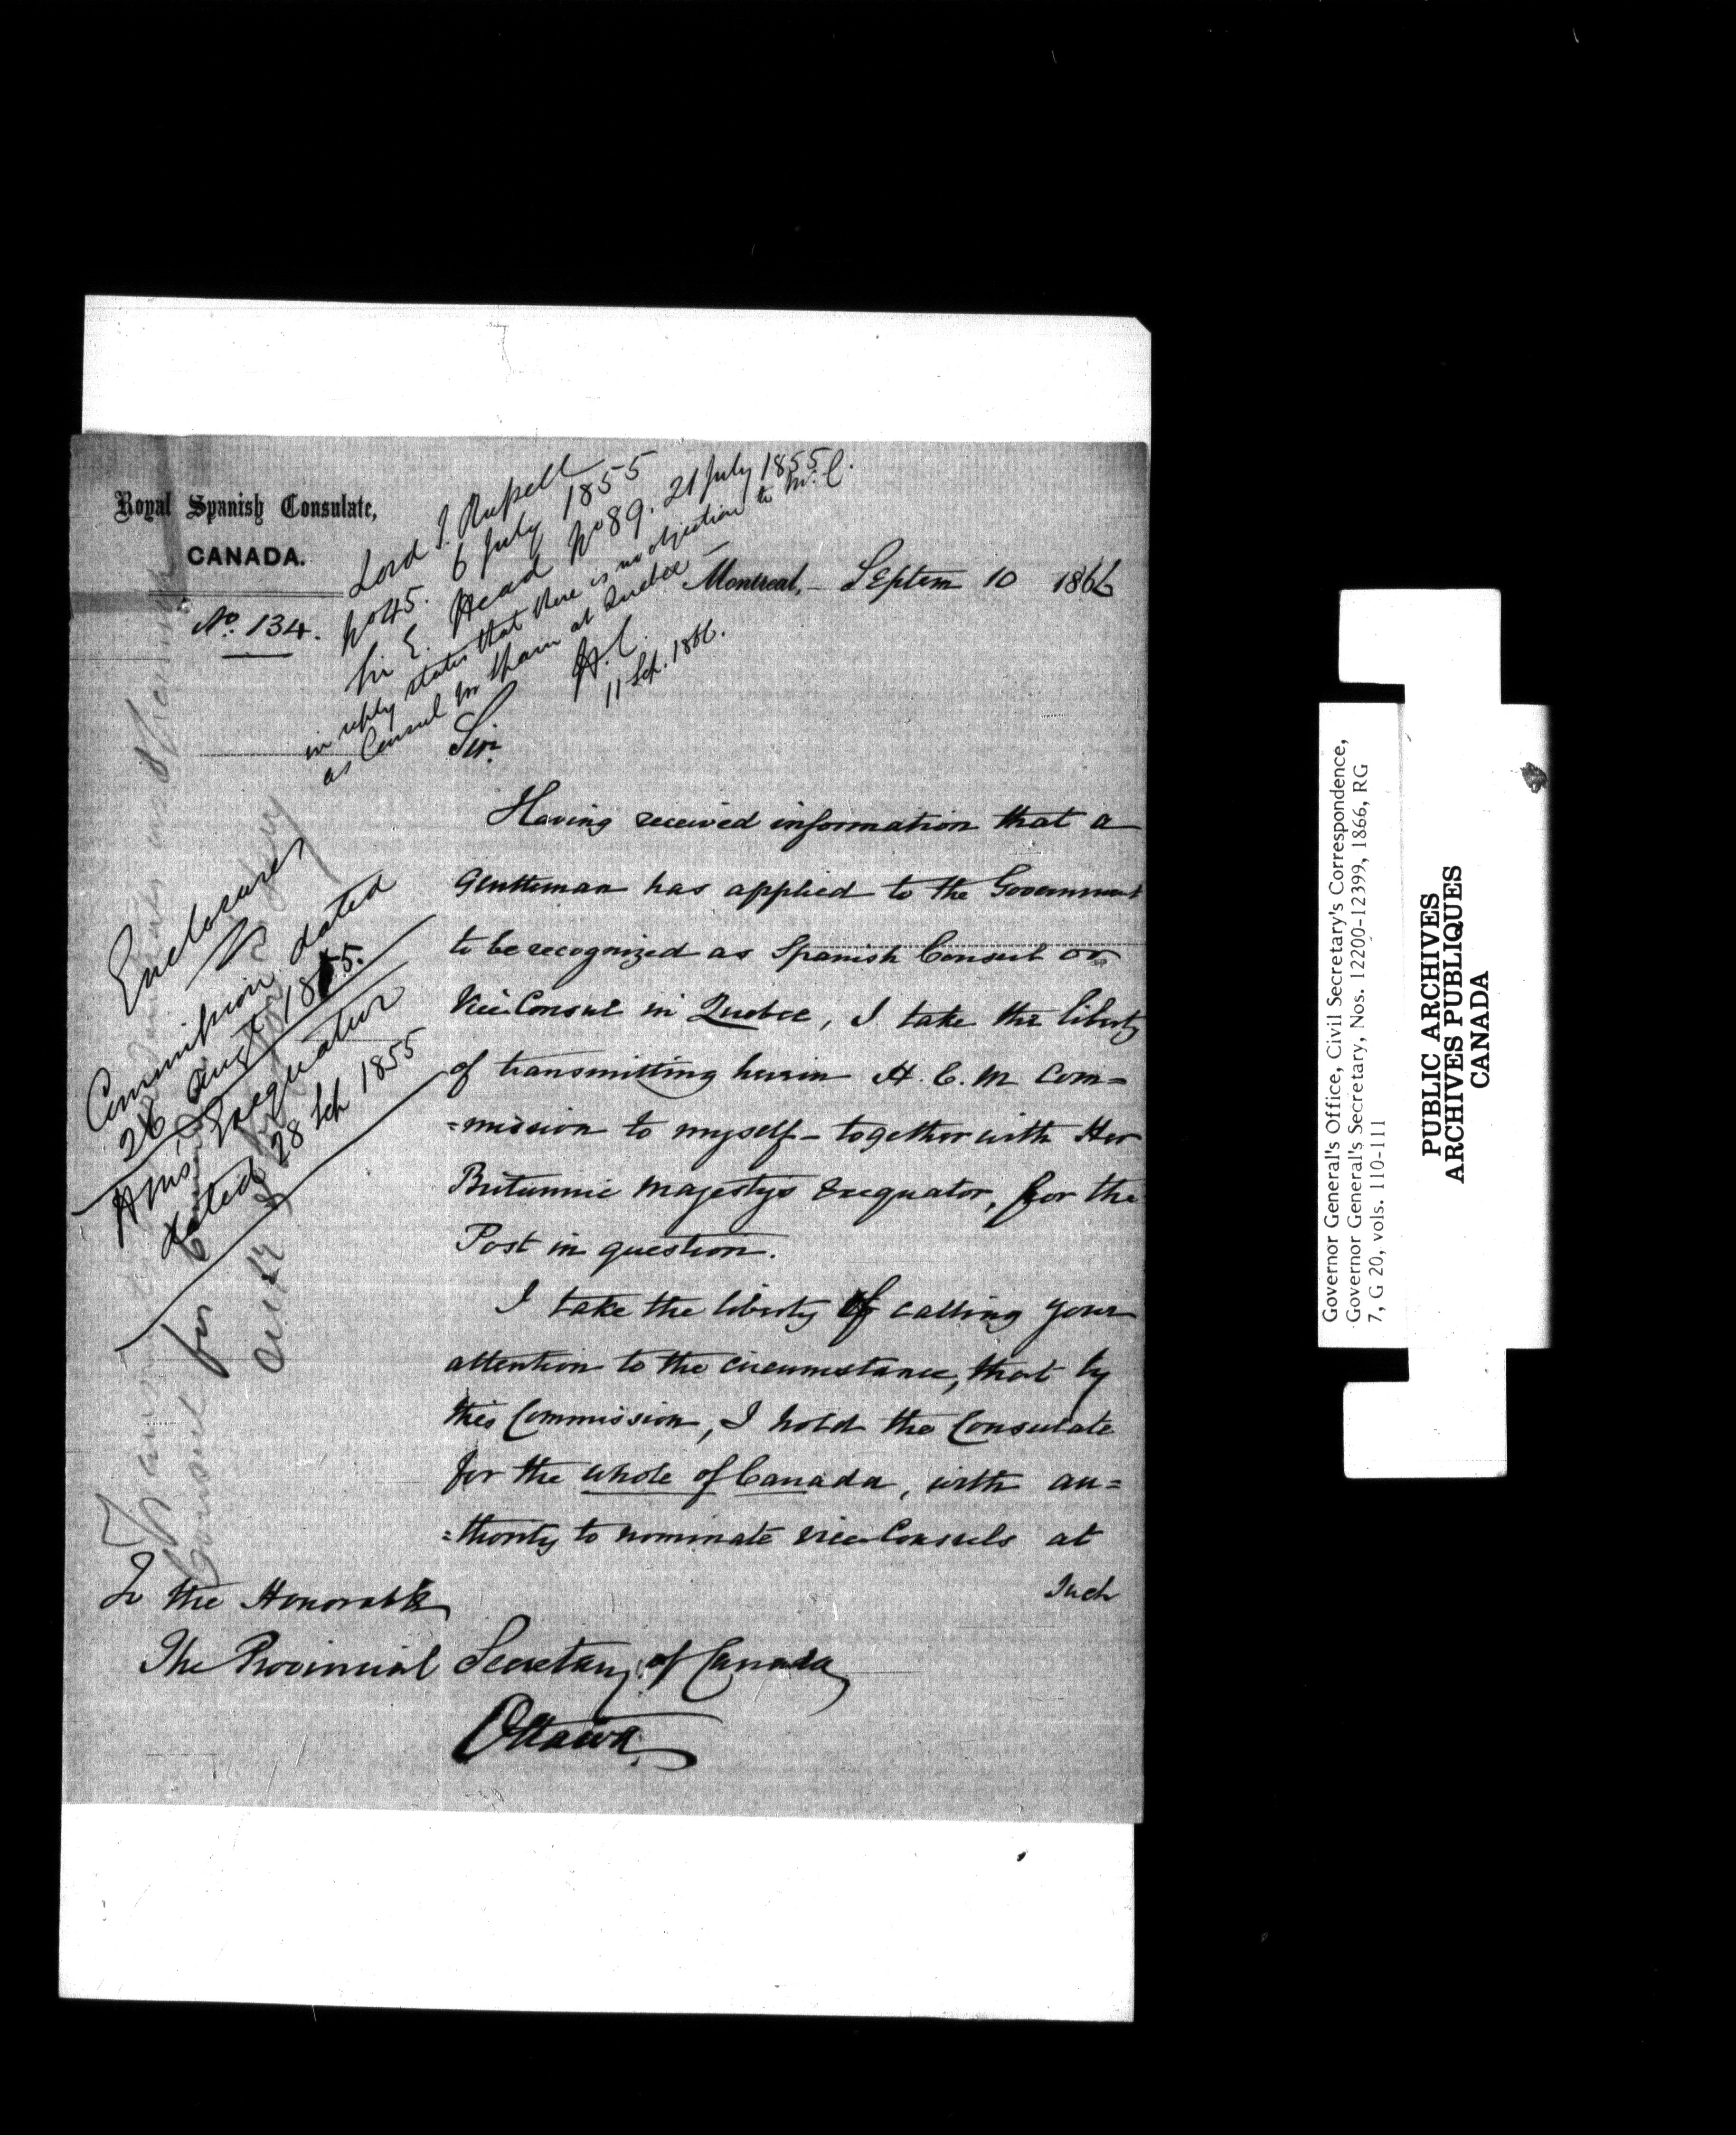 Royal Spanish Consulate,
CANADA.
No. 134.
Lord J. Russell
No 45. 6 July 1855
Sir E. Head No 89. 21 July 1855
in reply states that there is no objection to M. C.
as Consul for Spain at Quebec —
H. C.
11 Sep. 1866.
Montreal, — Septem 10 1866
Sir.
Having received information that a
Gentleman has applied to the Government
to be recognized as Spanish Consul or
Vice Consul in Quebec, I take the liberty
of transmitting herein H. C. M Com=
=mission to myself — together with Her
Britannic Majestys Exequator, for the
Post in question.
I take the liberty of calling your
attention to the circumstance, that by
this Commission, I hold the Consulate
for the whole of Canada, with au=
=thority to nominate Vice Consuls at
Such
Enclosures
Commission dated
26 Augt 1855.
HMs' Exequatur
dated 28 Sep 1855
Consul for
To the Honorable
The Provincial Secretary of Canada
Ottawa.
Governor General's Office, Civil Secretary's Correspondence,
Governor General's Secretary, Nos. 12200-12399, 1866, RG
7, G 20, vols. 110-111
PUBLIC ARCHIVES
ARCHIVES PUBLIQUES
CANADA